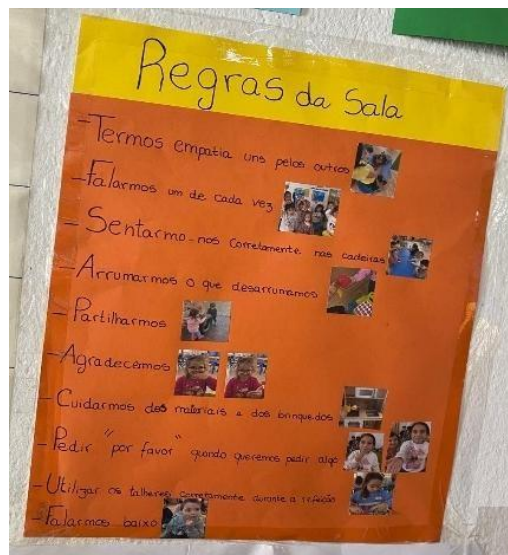 Regras da Sala
- Termos empatia uns pelos outros
- Falarmos um de cada vez
- Sentarmo-nos corretamente nas cadeiras
- Arrumarmos o que desarrumamos
- Partilharmos
- Agradecermos
- Cuidarmos dos materiais e dos brinquedos
- Pedir "por favor" quando queremos pedir algo
- Utilizar os talheres corretamente durante a refeição
- Falarmos baixo